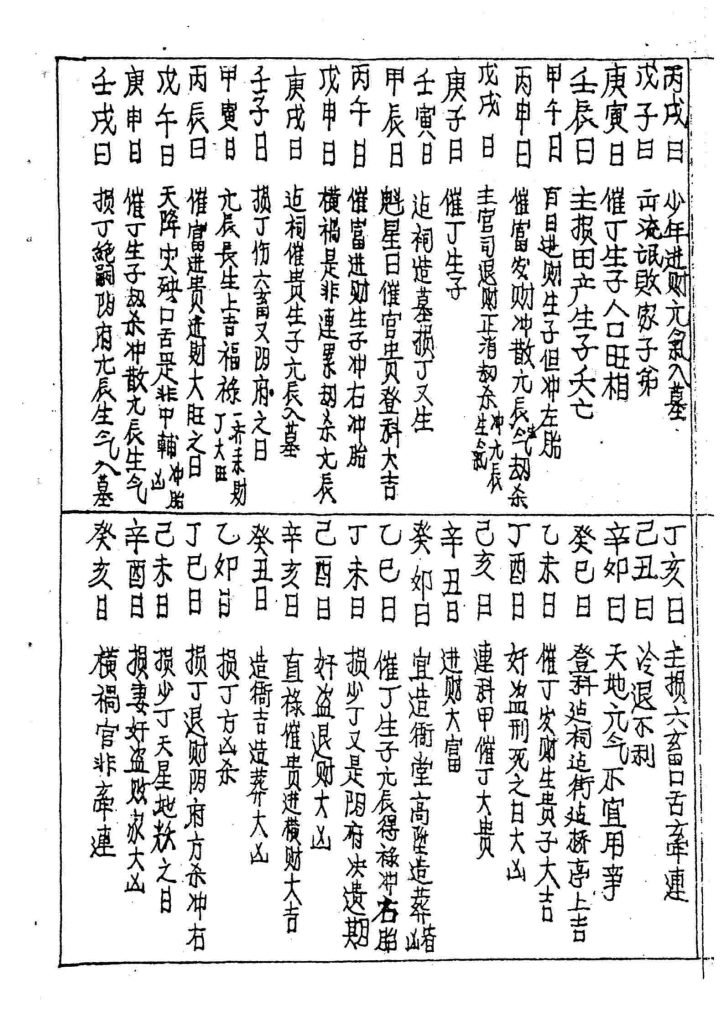 丙戌日 少年进财元氣入墓
戊子日 流氓敗家子弟
庚寅日 催丁生子人口旺相
壬辰日 主损田产生子夭亡
甲午日 百日进财生子但冲左胎
丙申日 催富发财冲散亢辰气劫杀
戊戌日 主官司退财正消劫杀冲亢辰生氣
庚子日 催丁生子
壬寅日 造祠造墓损丁又生
甲辰日 魁星日催官贵登科大吉
丙午日 催富进财生子冲右冲胎
戊申日 横禍是非連累劫杀亢辰
庚戌日 造祠催贵生子亢辰入墓
壬子日 损丁伤六畜又阴府之日
甲寅日 亢辰長生上吉福禄一齐来财丁大旺
丙辰日 催富进贵进财大旺之日
戊午日 天降灾殃口舌是非甲輔冲胎凶
庚申日 催丁生子劫杀冲散亢辰生气
壬戌日 损丁絶嗣阴府亢辰生气入墓
丁亥日 主损六畜口舌牽連
己丑日 冷退不利
辛卯日 天地元气不宜用事
癸巳日 登科造祠造街造桥亭上吉
乙未日 催丁发财生贵子大吉
丁酉日 好盗刑死之日大凶
己亥日 連科甲催丁大贵
辛丑日 进财大富
癸卯日 宜造衙堂高陞造葬者凶
乙巳日 催丁生子亢辰得禄冲右胎
丁未日 损少丁又是阴府决遗期
己酉日 好盗退财大凶
辛亥日 直禄催贵进横财大吉
癸丑日 造衙吉造葬大凶
乙卯日 损丁方凶杀
丁巳日 损丁退财阴府方杀冲右
己未日 损少丁天星地煞之日
辛酉日 损妻好盗败家大凶
癸亥日 横禍官非牽連